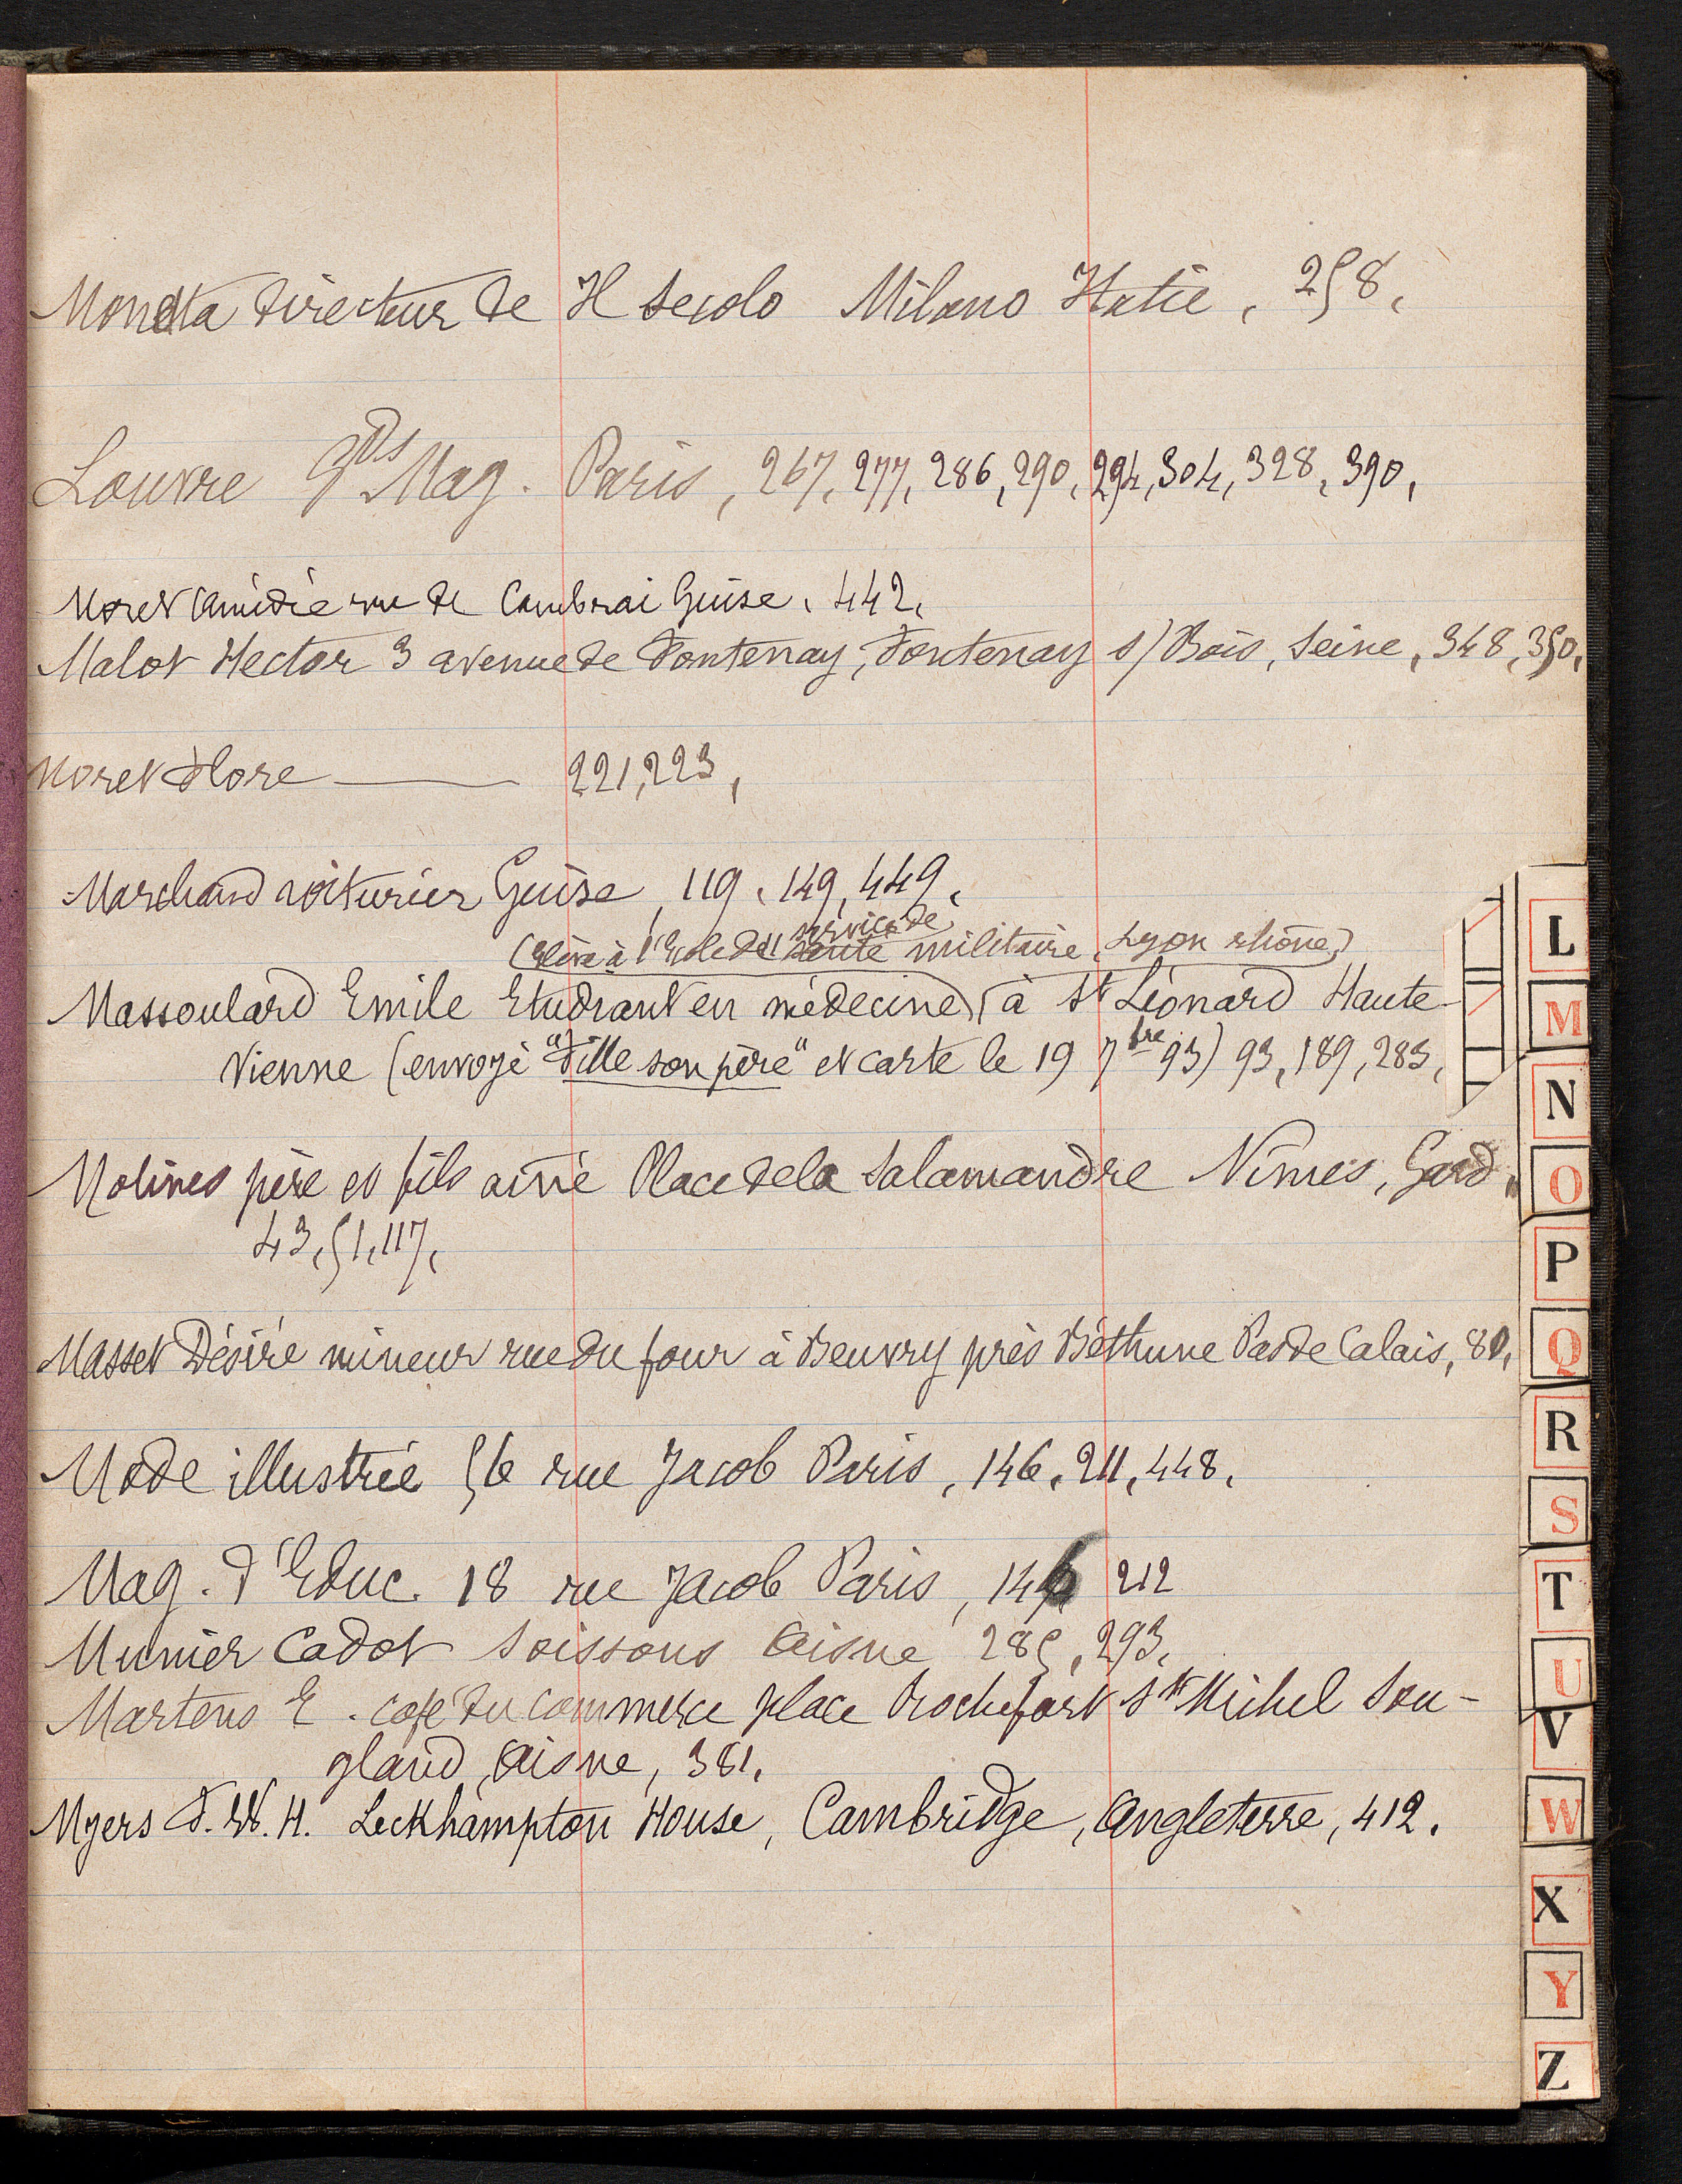 Moneta directeur de Il Secolo Milano Italie, 258,
Louvre Gds Mag. Paris, 267, 277, 286, 290, 294, 304, 328, 390,
Moret Amédée rue de Cambrai Guise, 442,
Malot Hector 3 avenue de Fontenay, Fontenay s/ Bois, Seine, 348, 350,
Moret Flore 221, 223,
Marchand voiturier Guise, 119, 149, 449,
service de
(Elève à l'Ecole du santé militaire, Lyon Rhône)
Massoulard Emile Etudiant en médecine, à St Léonard Haute-
Vienne (envoyé "Fille son père" et carte le 19 7bre 93) 93, 189, 283,
Molines père et fils ainé Place de la Salamandre Nîmes, Gard,
43, 51, 117,
Masset Désiré mineur rue du four à Beuvry près Béthune Pas de Calais, 80,
Mode illustrée 56 rue Jacob Paris, 146, 211, 448,
Mag. d'Educ. 18 rue Jacob Paris, 146 212
Munier Cadot Soissons Aisne 285, 293,
Martens E. café du commerce place Rochefort St Michel Sou-
gland, Aisne, 381,
Myers F. W. H. Leckhampton House, Cambridge, Angleterre, 412.
L
M
N
O
P
Q
R
S
T
U
V
W
X
Y
Z